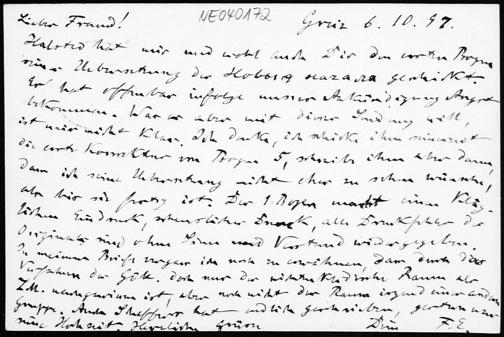 Lieber Freund! NE040172 Graz 6. 10. 97.
Halsted hat mir und wohl auch Dir den ersten Bogen
seiner Uebersetzung der geschickt.
Er hat offenbar infolge unserer Ankündigung Angst
bekommen. Was er aber mit dieser Sendung will,
ist mir nicht klar. Ich denke, ich schicke ihm
die erste Korrektur von Bogen 5, schreibe ihm aber dann,
dass ich seine Uebersetzung nicht eher zu sehen wünsche,
als bis sie fertig ist. Der 1. Bogen macht einen kläg-
lichen Eindruck, scheusslicher Druck, alle Druckfehler des
Originals sind ohne Sinn und Verstand wiedergegeben.
In meinem Briefe vergass ich noch zu erwähnen, dass durch das
Verfahren der doch nur der nichteuklidische Raum als
ist, aber noch nicht der Raum irgend einer andern
Gruppe. Auch Scheffers hat endlich geschrieben, gestern war
seine Hochzeit. Herzliche Grüsse Dein F.E.